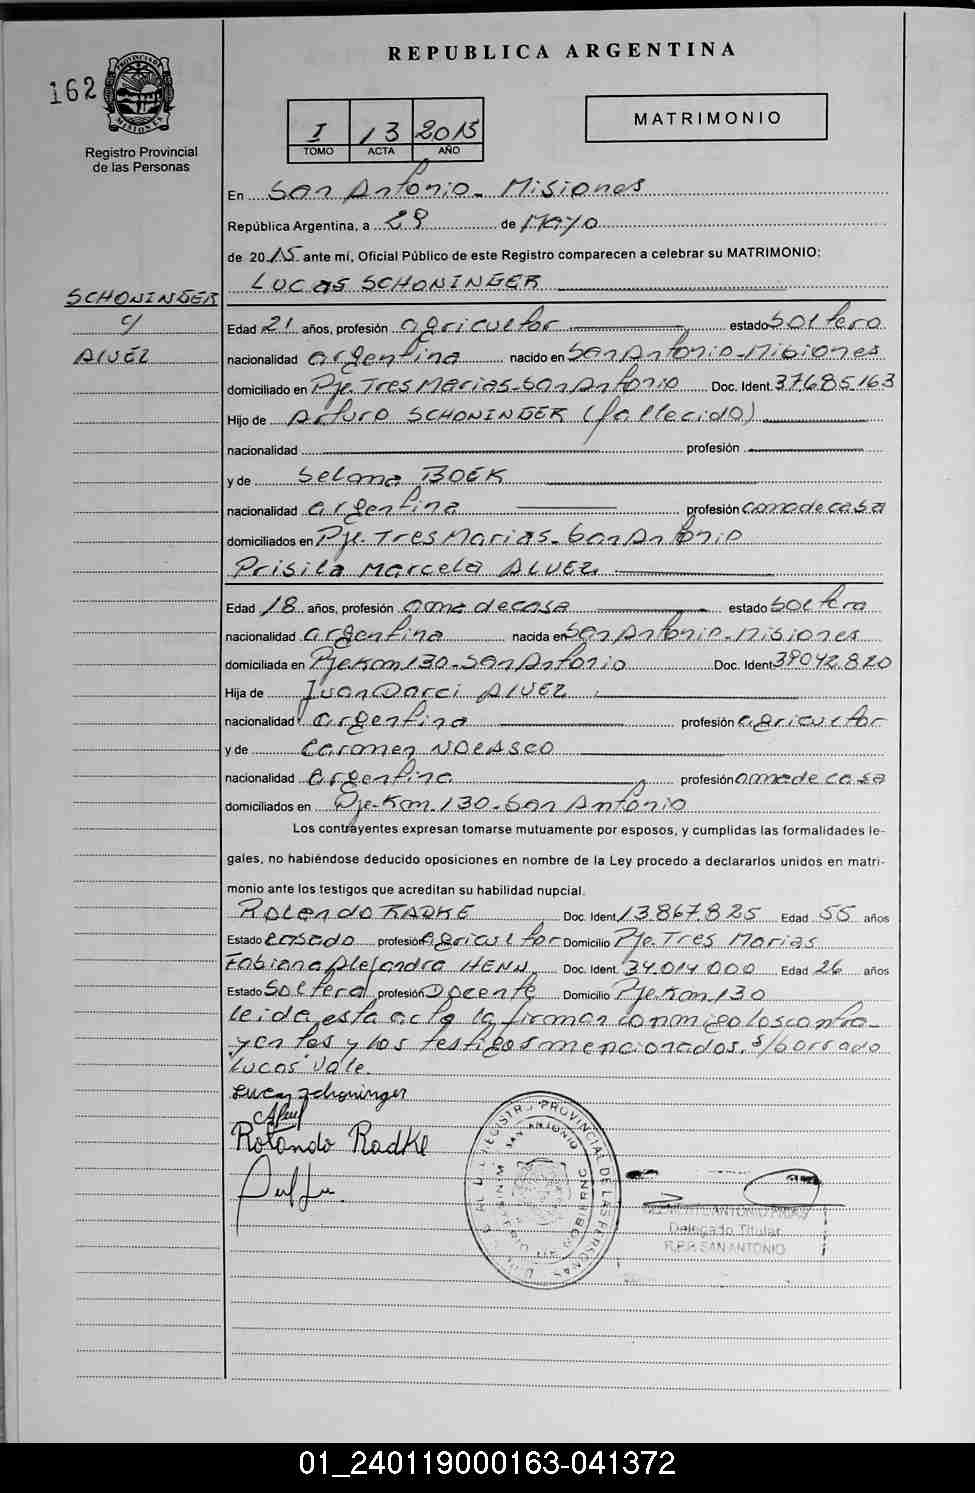 REPUBLICA ARGENTINA
162
PROVINCIA DE MISIONES
Registro Provincial
de las Personas
I 13 2015
TOMO ACTA AÑO
MATRIMONIO
En San Antonio - Misiones
República Argentina, a 29 de Mayo
de 2015 ante mí, Oficial Público de este Registro comparecen a celebrar su MATRIMONIO:
LUCAS SCHONINGER
SCHONINGER
c/
ALVEZ
Edad 21 años, profesión agricultor estado Soltero
nacionalidad argentina nacido en San Antonio - Misiones
domiciliado en Pje. Tres Marias - San Antonio Doc. Ident. 37.685.163
Hijo de Arturo SCHONINGER (fallecido)
nacionalidad profesión
y de Seloma BOEK
nacionalidad argentina profesión ama de casa
domiciliados en Pje. Tres Marias - San Antonio
Prisila Marcela ALVEZ
Edad 18 años, profesión ama de casa estado Soltera
nacionalidad argentina nacida en San Antonio - Misiones
domiciliada en Pje Km 130 - San Antonio Doc. Ident 39042.820
Hija de Juan Darci ALVEZ
nacionalidad argentina profesión agricultor
y de Carmen NOLASCO
nacionalidad Argentina profesión ama de casa
domiciliados en Pje - Km. 130 - San Antonio
Los contrayentes expresan tomarse mutuamente por esposos, y cumplidas las formalidades le-
gales, no habiéndose deducido oposiciones en nombre de la Ley procedo a declararlos unidos en matri-
monio ante los testigos que acreditan su habilidad nupcial.
Rolando RADKE Doc. Ident. 13.867.825 Edad 55 años
Estado casado profesión Agricultor Domicilio Pje. Tres Marias
Fabiana Alejandra HENN Doc. Ident. 34.014.000 Edad 26 años
Estado Soltera profesión Docente Domicilio Pje. Km. 130
leida esta acta la firman conmigo los contra-
yentes y los testigos mencionados. s/borrado
"Lucas" Vale.
Lucas Schoninger
Rolando Radke
REGISTRO PROVINCIAL DE LAS PERSONAS
SAN ANTONIO
Delegado Titular
R.P.P. SAN ANTONIO
01_240119000163-041372